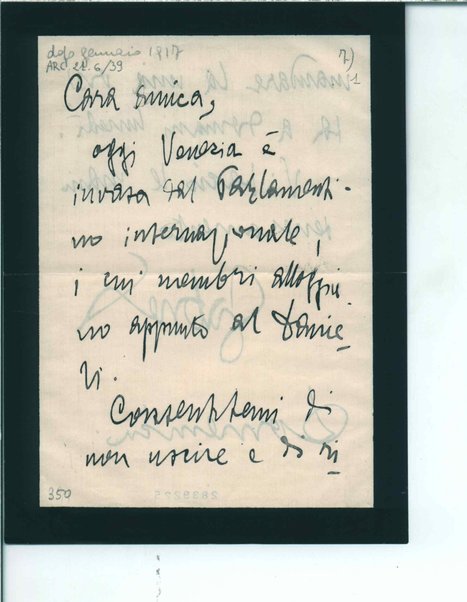 dopo gennaio 1917
ARC 21.6/39
7)
1
Cara amica,
oggi Venezia è
invasa dal Parlamenti-
no internazionale,
i cui membri alloggia
no appunto al Danie
li.
Consentitemi di
non uscire e di ri
350